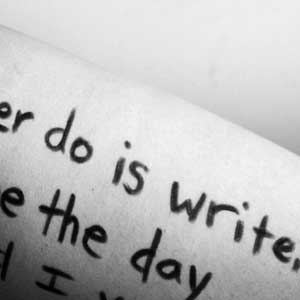 er do is write.
e the day
I